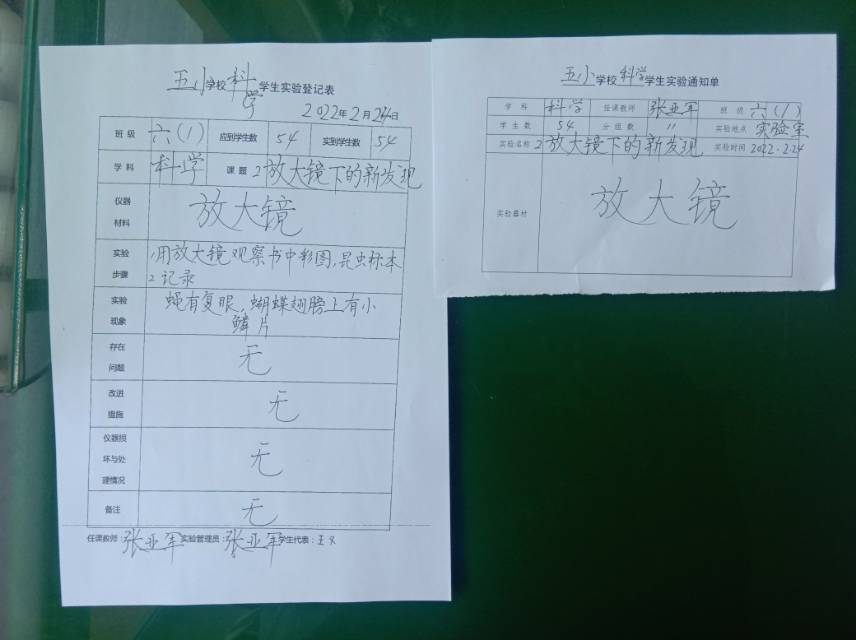 五小学校科学学生实验登记表
2022年2月24日
班级 六(1) 应到学生数 54 实到学生数 54
学科 科学 课题 2放大镜下的新发现
仪器材料 放大镜
实验步骤 1用放大镜观察书中彩图,昆虫标本
2记录
实验现象 蝇有复眼,蝴蝶翅膀上有小
鳞片
存在问题 无
改进措施 无
仪器损坏与处理情况 无
备注 无
任课教师:张亚军 实验管理员:张亚军 学生代表:王
五小学校科学学生实验通知单
学科 科学 任课教师 张亚军 班级 六(1)
学生数 54 分组数 11 实验地点 实验室
实验名称 2放大镜下的新发现 实验时间 2022.2.24
实验器材 放大镜